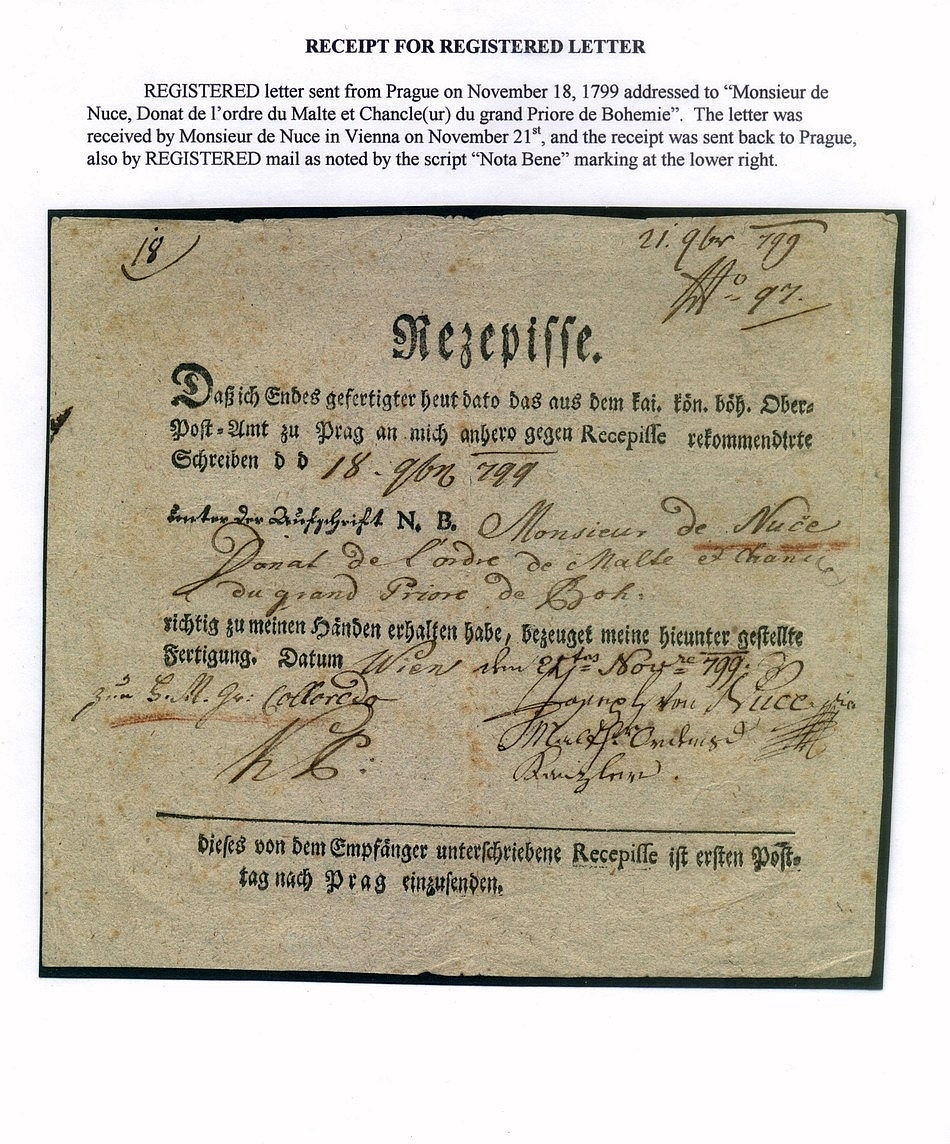 RECEIPT FOR REGISTERED LETTER
REGISTERED letter sent from Prague on November 18, 1799 addressed to “Monsieur de
Nuce, Donat de l’ordre du Malte et Chancle(ur) du grand Priore de Bohemie”. The letter was
received by Monsieur de Nuce in Vienna on November 21st, and the receipt was sent back to Prague,
also by REGISTERED mail as noted by the script “Nota Bene” marking at the lower right.
18
21. 9br 799
No 97.
Rezepisse.
Daß ich Endes gefertigter heut dato das aus dem kai. kön. böh. Ober-
Post-Amt zu Prag an mich anhero gegen Recepisse rekommendirte
Schreiben d d 18 - 9br 799
unter der Aufschrift N. B. Monsieur de Nuce
Donat de l'ordre de Malte et Chanc
du grand Priore de Boh:
richtig zu meinen Händen erhalten habe, bezeuget meine hieunter gestellte
Fertigung. Datum Wien den 21tes Novre 799.
Gr: Colloredo Joseph von Nuce
Malth. Ordens
Kanzler.
dieses von dem Empfänger unterschriebene Recepisse ist ersten Post-
tag nach Prag einzusenden.